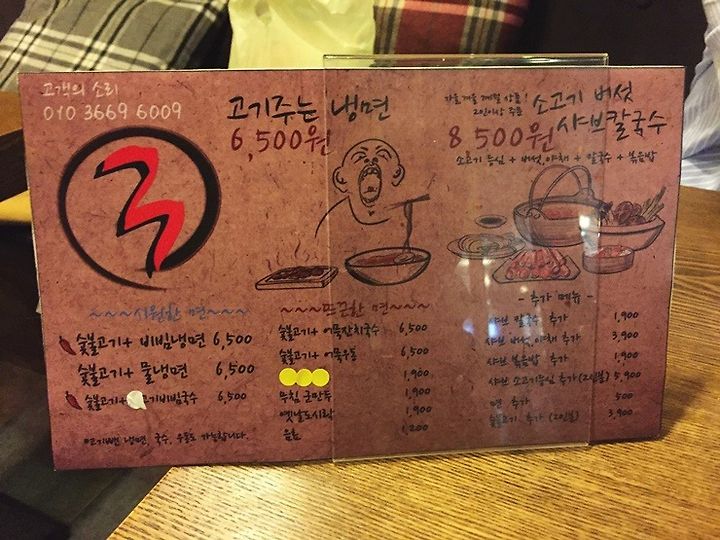 고객의 소리
010 3669 6009
고기주는 냉면
6,500원
가을겨울 계절 상품!
2인이상 주문
소고기 버섯
샤브칼국수
8 500원
소고기 등심 + 버섯,야채 + 칼국수 + 볶음밥
~~~시원한 면~~~
숯불고기+ 비빔냉면 6,500
숯불고기+ 물냉면 6,500
숯불고기+ 기비빔국수 6,500
냉면, 국수, 우동도 가능합니다.
~~~뜨끈한 면~~~
숯불고기+ 어묵잔치국수 6,500
숯불고기+ 어묵우동 6,500
1,900
무침 군만두 1,900
옛날도시락 1,900
음료 1,200
- 추가 메뉴 -
샤브 칼국수 추가 1,900
샤브 버섯,야채 추가 3,900
샤브 볶음밥 추가 1,900
샤브 소고기등심 추가 (2인분) 5,900
면 추가 500
숯불고기 추가 (2인분) 3,900